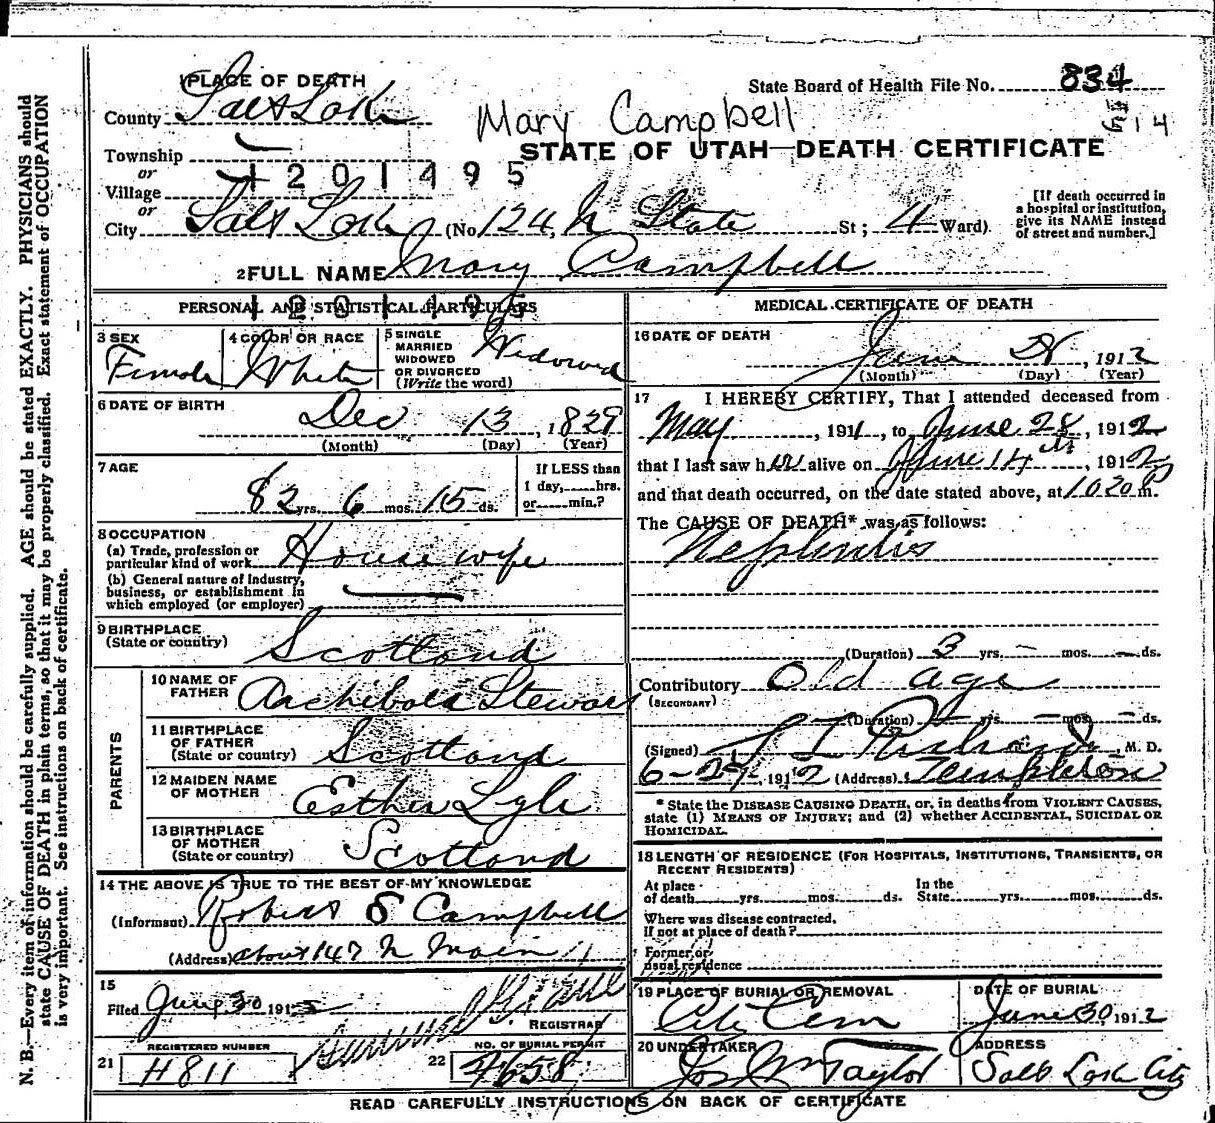 1 PLACE OF DEATH
State Board of Health File No. 834
County Salt Lake
Mary Campbell
14
STATE OF UTAH—DEATH CERTIFICATE
Township
or
1201495
Village
or
City Salt Lake (No. 124, N State St; 4 Ward)
[If death occurred in a hospital or institution, give its NAME instead of street and number.]
2 FULL NAME Mary Campbell
PERSONAL AND STATISTICAL PARTICULARS
1201495
3 SEX Female
4 COLOR OR RACE White
5 SINGLE MARRIED WIDOWED OR DIVORCED (Write the word) Widowed
6 DATE OF BIRTH
Dec 13, 1829
(Month) (Day) (Year)
7 AGE
82 yrs. 6 mos. 15 ds.
If LESS than 1 day, hrs. or min.?
8 OCCUPATION
(a) Trade, profession or particular kind of work House wife
(b) General nature of Industry, business, or establishment in which employed (or employer)
9 BIRTHPLACE
(State or country) Scotland
PARENTS
10 NAME OF FATHER Archibald Stewart
11 BIRTHPLACE OF FATHER (State or country) Scotland
12 MAIDEN NAME OF MOTHER Esther Lyle
13 BIRTHPLACE OF MOTHER (State or country) Scotland
14 THE ABOVE IS TRUE TO THE BEST OF MY KNOWLEDGE
(Informant) Robert S Campbell
(Address) about 147 N Main
15
Filed June 30 191
REGISTRAR
21 REGISTERED NUMBER H811
22 NO. OF BURIAL PERMIT 4658
MEDICAL CERTIFICATE OF DEATH
16 DATE OF DEATH
June 28, 1912
(Month) (Day) (Year)
17 I HEREBY CERTIFY, That I attended deceased from
May, 1911, to June 28, 1912
that I last saw her alive on June 14th, 1912
and that death occurred, on the date stated above, at 1020 P m.
The CAUSE OF DEATH* was as follows:
Nephritis
(Duration) 3 yrs. – mos. – ds.
Contributory Old age
(SECONDARY)
(Duration) – yrs. – mos. – ds.
(Signed) Richards, M. D.
6-29-, 1912 (Address) Templeton
* State the DISEASE CAUSING DEATH, or, in deaths from VIOLENT CAUSES, state (1) MEANS OF INJURY; and (2) whether ACCIDENTAL, SUICIDAL OR HOMICIDAL.
18 LENGTH OF RESIDENCE (FOR HOSPITALS, INSTITUTIONS, TRANSIENTS, OR RECENT RESIDENTS)
At place of death yrs. mos. ds. In the State yrs. mos. ds.
Where was disease contracted.
If not at place of death?
Former or
usual residence
19 PLACE OF BURIAL OR REMOVAL
City Cem
DATE OF BURIAL
June 30, 1912
20 UNDERTAKER
Jos Wm Taylor
ADDRESS
Salt Lake City
READ CAREFULLY INSTRUCTIONS ON BACK OF CERTIFICATE
N. B.—Every item of information should be carefully supplied. AGE should be stated EXACTLY. PHYSICIANS should
state CAUSE OF DEATH in plain terms, so that it may be properly classified. Exact statement of OCCUPATION
is very important. See instructions on back of certificate.